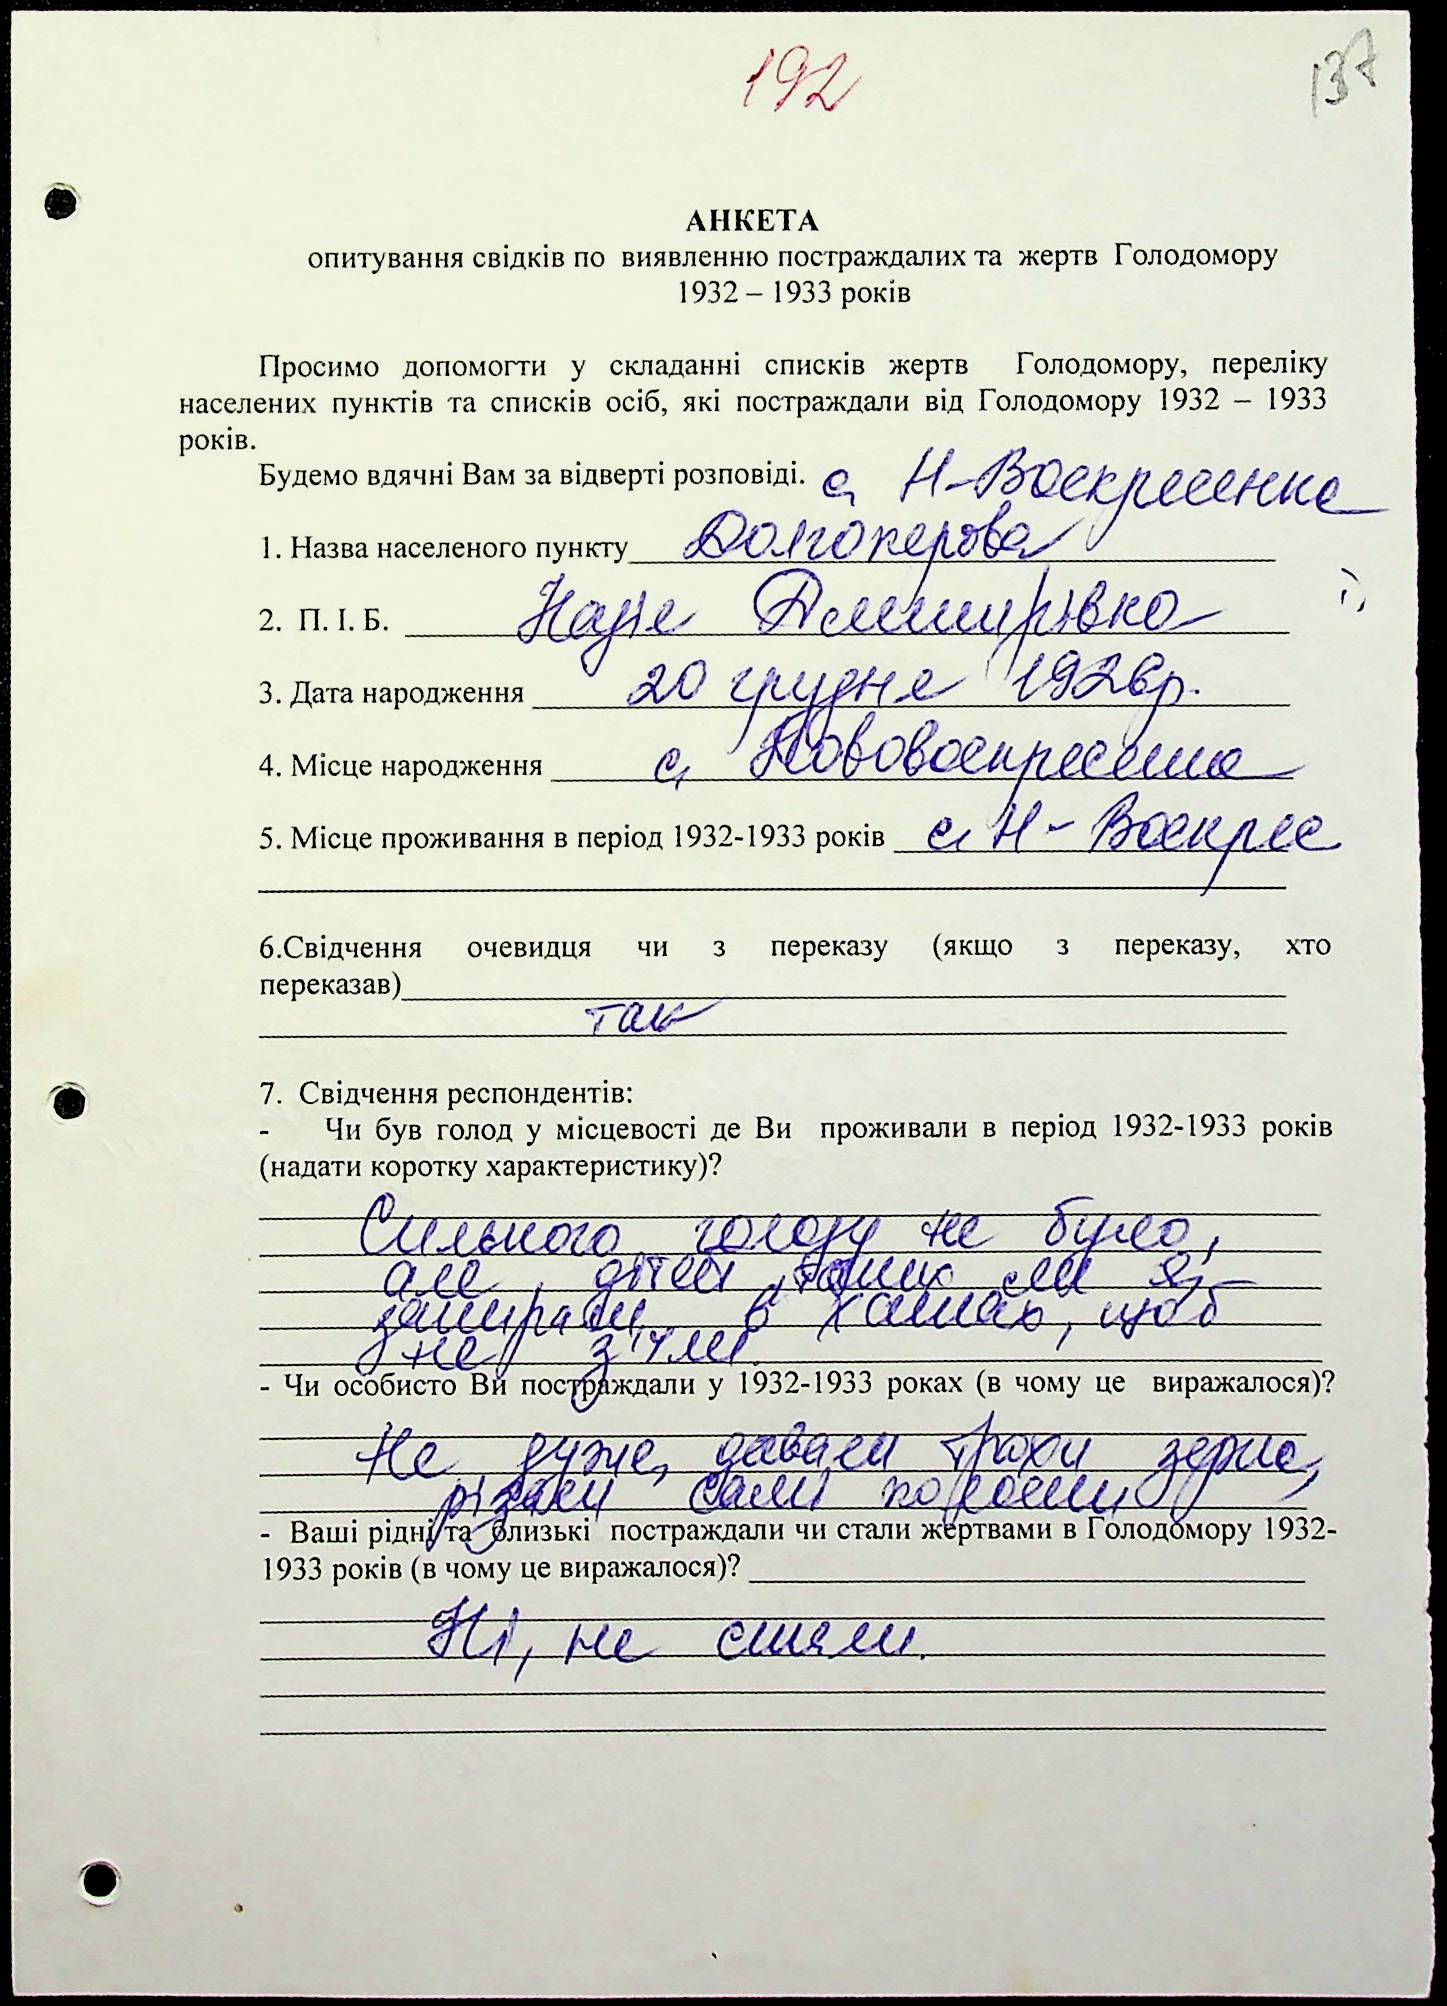 192
137
АНКЕТА
опитування свідків по виявленню постраждалих та жертв Голодомору
1932 – 1933 років
Просимо допомогти у складанні списків жертв Голодомору, переліку
населених пунктів та списків осіб, які постраждали від Голодомору 1932 – 1933
років.
Будемо вдячні Вам за відверті розповіді. с. Н-Воскресенка
1. Назва населеного пункту Долгоперова
2. П. І. Б. Надія Дмитрівна
3. Дата народження 20 грудня 1926р.
4. Місце народження с. Нововоскресенка
5. Місце проживання в період 1932-1933 років с. Н-Воскрес
6.Свідчення очевидця чи з переказу (якщо з переказу, хто
переказав)
так
7. Свідчення респондентів:
- Чи був голод у місцевості де Ви проживали в період 1932-1933 років
(надати коротку характеристику)?
Сильного голоду не було,
але дітей
запирали в хатах, щоб
не з'їли.
- Чи особисто Ви постраждали у 1932-1933 роках (в чому це виражалося)?
Не дуже, давали трохи зерна,
різали самі корови
- Ваші рідні та близькі постраждали чи стали жертвами в Голодомору 1932-
1933 років (в чому це виражалося)?
Ні, не